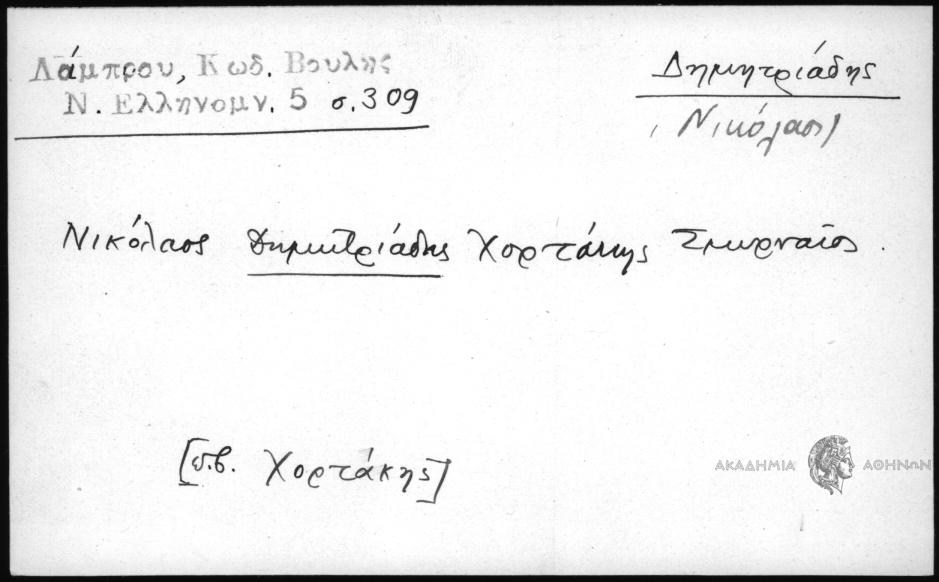 Λάμπρου, Κωδ. Βουλῆς
Ν. Ελληνομν. 5 σ. 309
Δημητριάδης
(Νικόλαος)
Νικόλαος Δημητριάδης Χορτάκης Σμυρναῖος.
[π.β. Χορτάκης]
ΑΚΑΔΗΜΙΑ ΑΘΗΝΩΝ